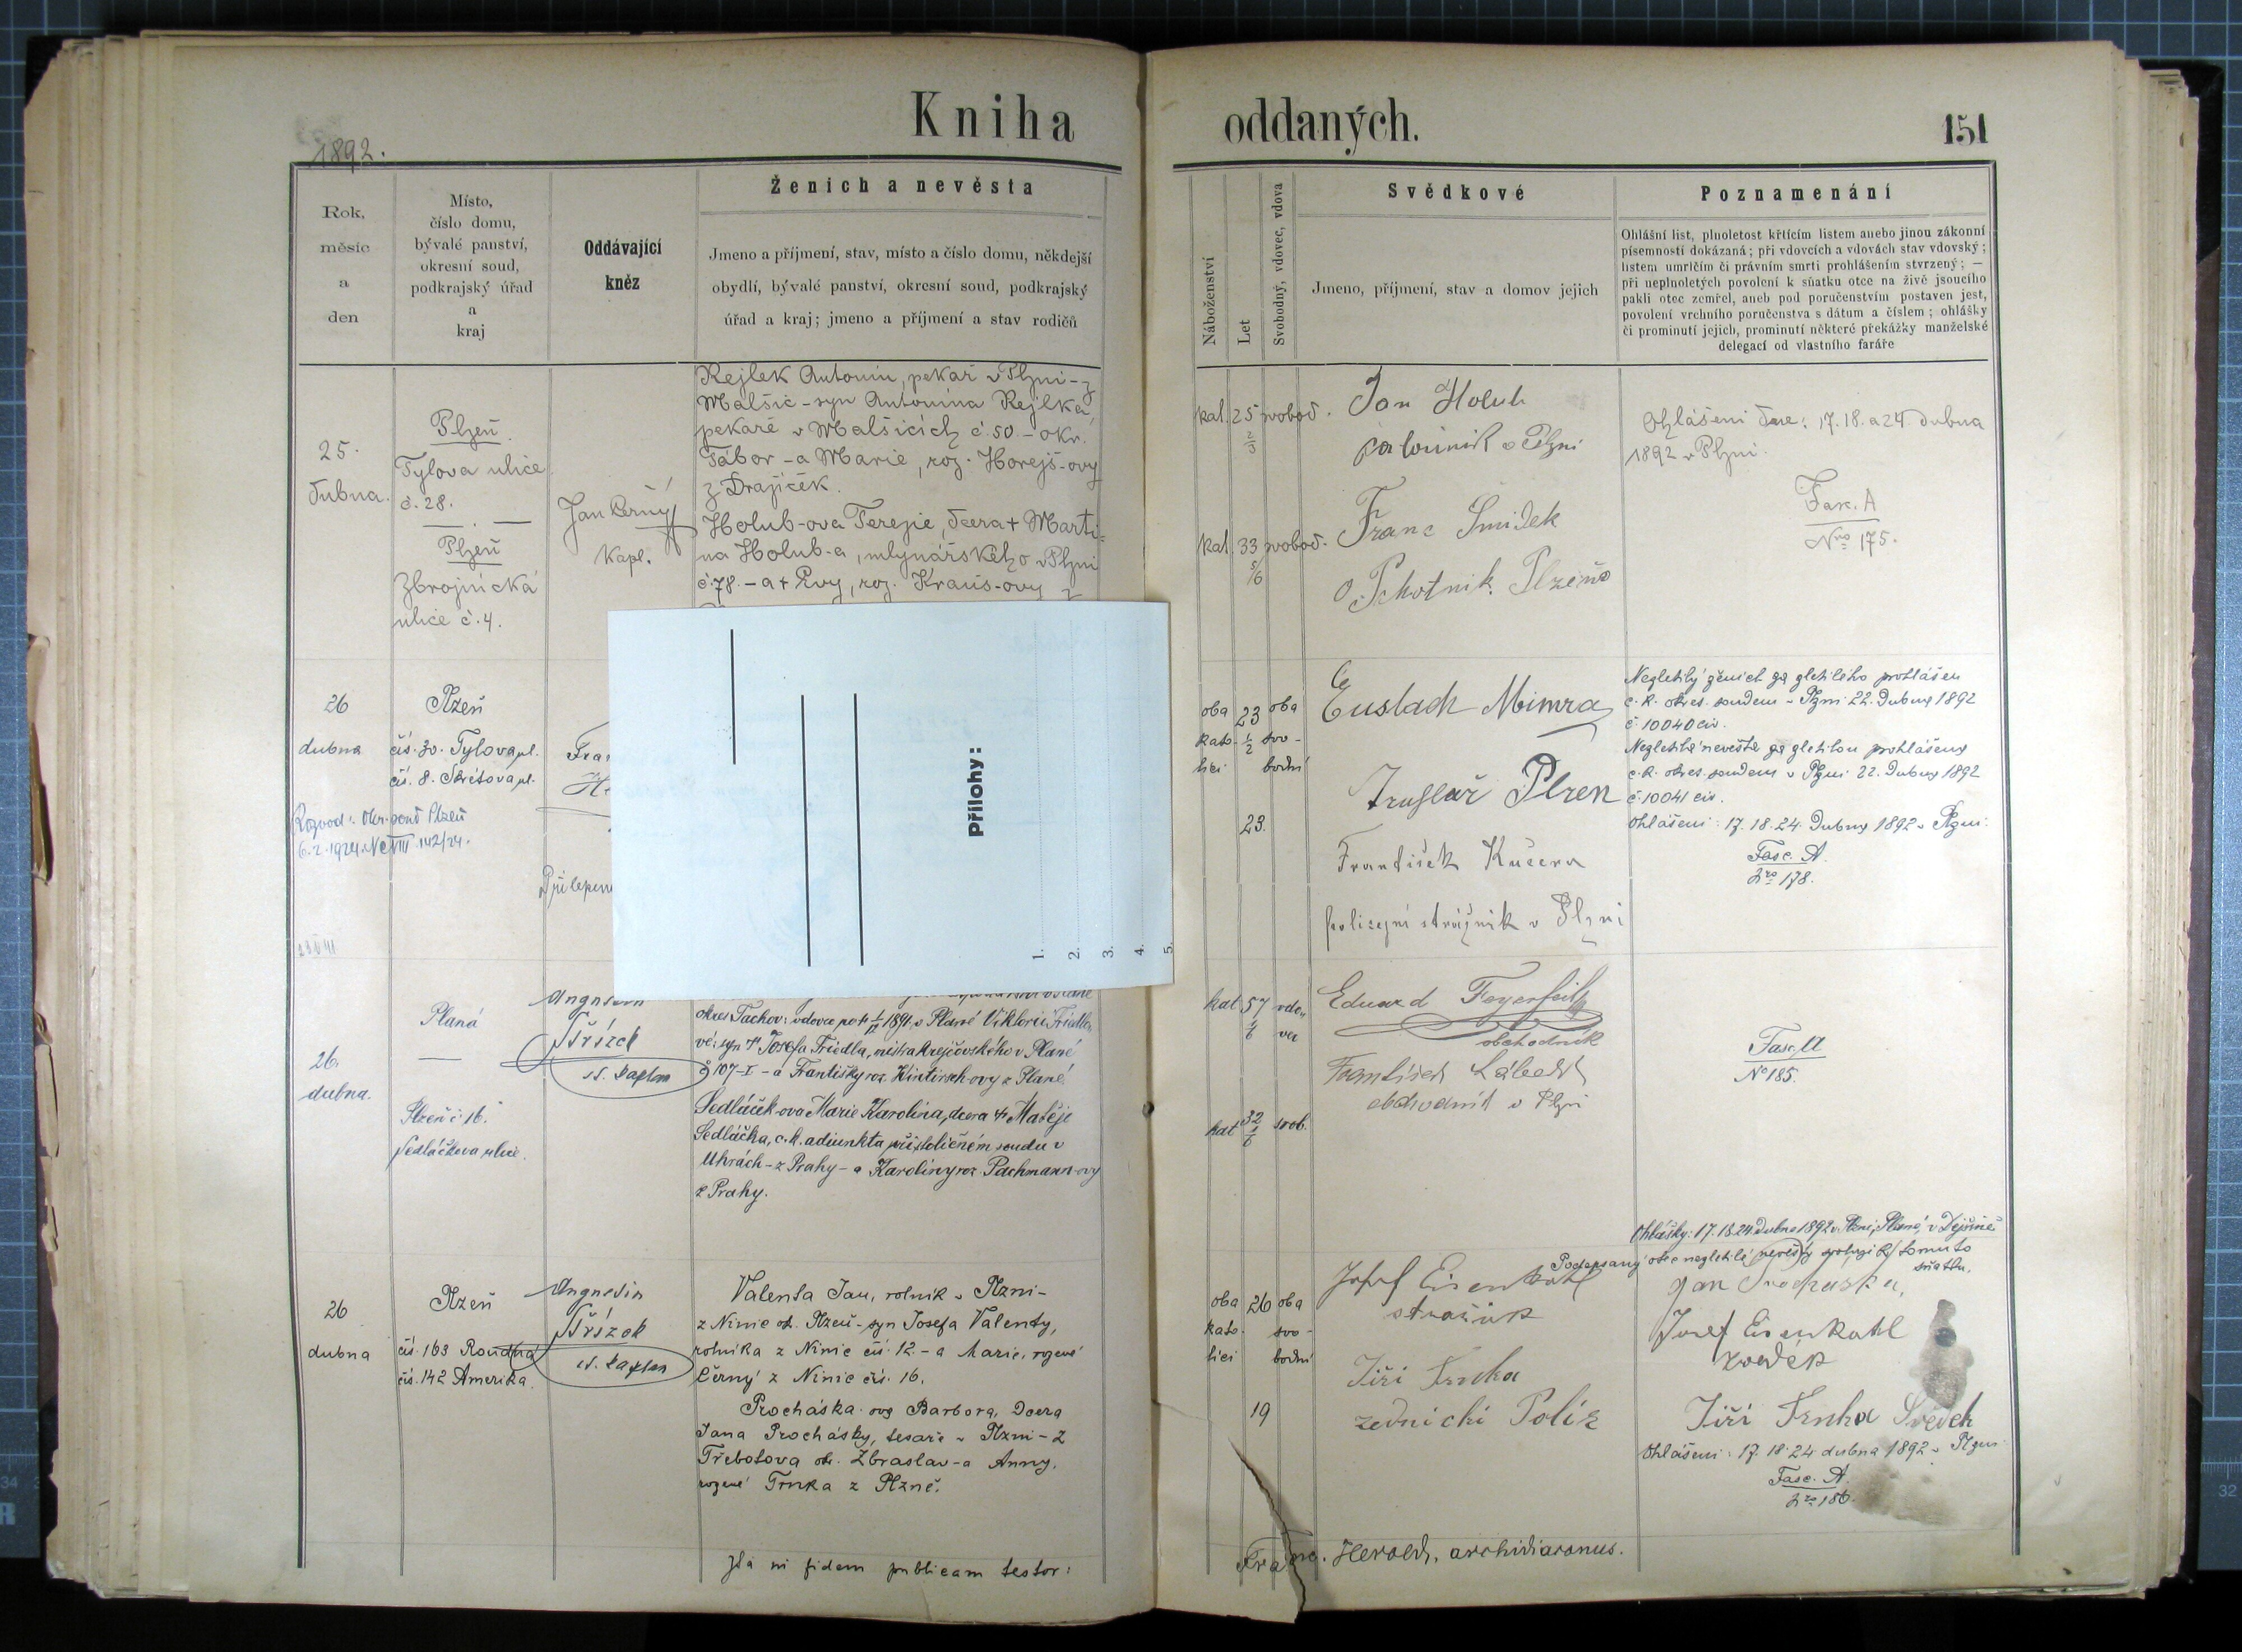 1892.
Kniha oddaných.
151
Rok,
měsíc
a
den
Místo,
číslo domu,
bývalé panství,
okresní soud,
podkrajský úřad
a
kraj
Oddávající
kněz
Ženich a nevěsta
Jmeno a příjmení, stav, místo a číslo domu, někdejší
obydlí, bývalé panství, okresní soud, podkrajský
úřad a kraj; jmeno a příjmení a stav rodičů
Náboženství
Let
Svobodný, vdovec, vdova
Svědkové
Jmeno, příjmení, stav a domov jejich
Poznamenání
Ohlášní list, plnoletost křticím listem anebo jinou zákonní
písemností dokázaná; při vdovcích a vdovách stav vdovský;
listem umrlčím či právním smrti prohlášením stvrzený; —
při neplnoletých povolení k sňatku otce na živě jsoucího
pakli otec zemřel, aneb pod poručenstvím postaven jest,
povolení vrchního poručenstva s dátum a číslem; ohlášky
či prominutí jejich, prominutí některé překážky manželské
delegací od vlastního faráře
25.
dubna.
Plzeň
Tylova ulice
č. 28.
Plzeň
Zbrojnická
ulice č. 4.
Jan Černý
kapl.
Rejlek Antonín, pekař v Plzni - z
Malšic - syn Antonína Rejlka,
pekaře v Malšicích č. 50 - okr.
Tábor - a Marie, roz. Horejš-ovy
z Dražiček.
Holub-ova Terezie, dcera + Marti-
na Holub-a, mlynářského v Plzni
č. 78. - a + Evy, roz. Kraus-ovy z
kat. 25 svobod.
2/3
kat. 33 svobod.
5/6
Jan Holub
v Plzni
Franc Smidek
Plzeň
Ohlášeni dne: 17. 18. a 24. dubna
1892 v Plzni.
Fasc. A
Nro 175.
26
dubna
Plzeň
čís. 30. Tylova ul.
čís. 8. Skrétova ul.
Rozvod: Okr. soud Plzeň
6.2.1924 Nc VIII 142/24.
Přílohy:
1.
2.
3.
4.
5.
oba 23 oba
kato- 1/2 svo-
lici bodni
23.
Eustach Mimra
Truhlař Plzen
František Kučera
policejní strážník v Plzni
Nezletilý ženich za zletilého prohlášen
c. k. okres. soudem v Plzni 22. dubna 1892
č. 10040 civ.
Nezletilá nevěsta za zletilou prohlášena
c. k. okres. soudem v Plzni 22. dubna 1892
č. 10041 civ.
Ohlášeni: 17. 18. 24. dubna 1892 v Plzni.
Fasc. A.
Nro 178.
26.
dubna.
Planá
Plzeň č. 16.
Sedláčkova ulice.
Augustin
Střízek
st. kaplan
okres Tachov: vdovec po + 1891 v Plané Viktorii Friedlo-
vé: syn + Josefa Friedla, mistra krejčovského v Plané
č. 107-I - a Františky roz. Wintirsch-ovy z Plané.
Sedláček-ova Marie Karolina, dcera + Matěje
Sedláčka, c. k. adjunkta při stoličném soudu v
Uhrách - z Prahy - a Karoliny roz. Pachmann-ovy
z Prahy.
kat 57 vdo-
vec
kat 32 svob.
Eduard Feyerfeil
obchodník
František
obchodník v Plzni
Fasc. A
No 185.
Ohlášky: 17. 18. 24. dubna 1892 v Plzni, Plané, v Dýšině
26
dubna
Plzeň
čís. 163 Roudná
čís. 142 Amerika.
Augustin
Střízek
st. kaplan
Valenta Jan, rolník v Plzni -
z Ninic ok. Plzeň - syn Josefa Valenty,
rolníka z Ninic čís. 12. - a Marie, rozené
Černý z Ninic čís. 16.
Procháska-ova Barbora, dcera
Jana Procházky, tesaře v Plzni - z
Třebotova ok. Zbraslav - a Anny,
rozené Trnka z Plzně.
oba 26 oba
kato- svo-
lici bodni
19
Josef Eisenkohl
strážník
Jiří Trnka
zednický Polír
Podepsaný otec nezletilé nevěsty svoluji k tomuto
sňatku.
Jan Procháska,
Josef Eisenkohl
svědek
Jiří Trnka Svědek
Ohlášeni: 17. 18. 24. dubna 1892 v Plzni
Fasc. A.
Nro 186.
Ita in fidem publicam testor:
Franc. Herold, archidiaconus.